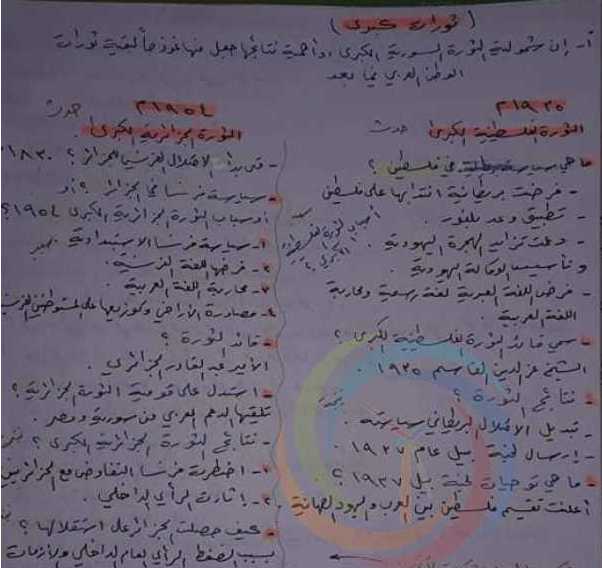 ( ثورات كبرى )
أ- إن شمولية الثورة السورية الكبرى وأهمية نتائجها جعل منها نموذجاً لبقية ثورات
الوطن العربي فيما بعد
١٩٣٥م
الثورة الفلسطينية الكبرى حدث
ما هي سياسة بريطانية في فلسطين ؟
- فرضت بريطانية انتدابها على فلسطين
- تطبيق وعد بلفور .
- دعت تزايد الهجرة اليهودية .
و تأسيس الوكالة اليهودية .
- فرض اللغة العبرية لغة رسمية ومحاربة
اللغة العربية .
أسباب الثورة الفلسطينية
الكبرى ؟
- سمي قائد الثورة الفلسطينية الكبرى ؟
الشيخ عز الدين القاسم ١٩٣٥ .
- نتائج الثورة ؟
- تبديل الاحتلال البريطاني سياسته .
- إرسال لجنة بيل عام ١٩٣٧ .
- ما هي توصيات لجنة بيل ١٩٣٧ ؟
أعلنت تقسيم فلسطين بين العرب واليهود الصهاينة .
١٩٥٤م حدث
الثورة الجزائرية الكبرى
- متى بدأ الاحتلال الفرنسي الجزائر ؟ ١٨٣٠
- سياسة فرنسا في الجزائر ؟ أو
أسباب الثورة الجزائرية الكبرى ١٩٥٤ ؟
١- سياسة فرنسا الاستبدادية .
٢- فرضها اللغة الفرنسية .
٣- محاربة اللغة العربية .
٤- مصادرة الأراضي وتوزيعها على المستوطنين
- قائد الثورة ؟
الأمير عبد القادر الجزائري .
- استدل على قومية الثورة الجزائرية ؟
تلقيها الدعم العربي من سورية ومصر .
- نتائج الثورة الجزائرية الكبرى ؟
١- اضطرت فرنسا التفاوض مع الجزائريين
٢- إثارت الرأي الداخلي .
- كيف حصلت الجزائر على استقلالها ؟
بسبب الضغط الرأي العام الداخلي والأزمات